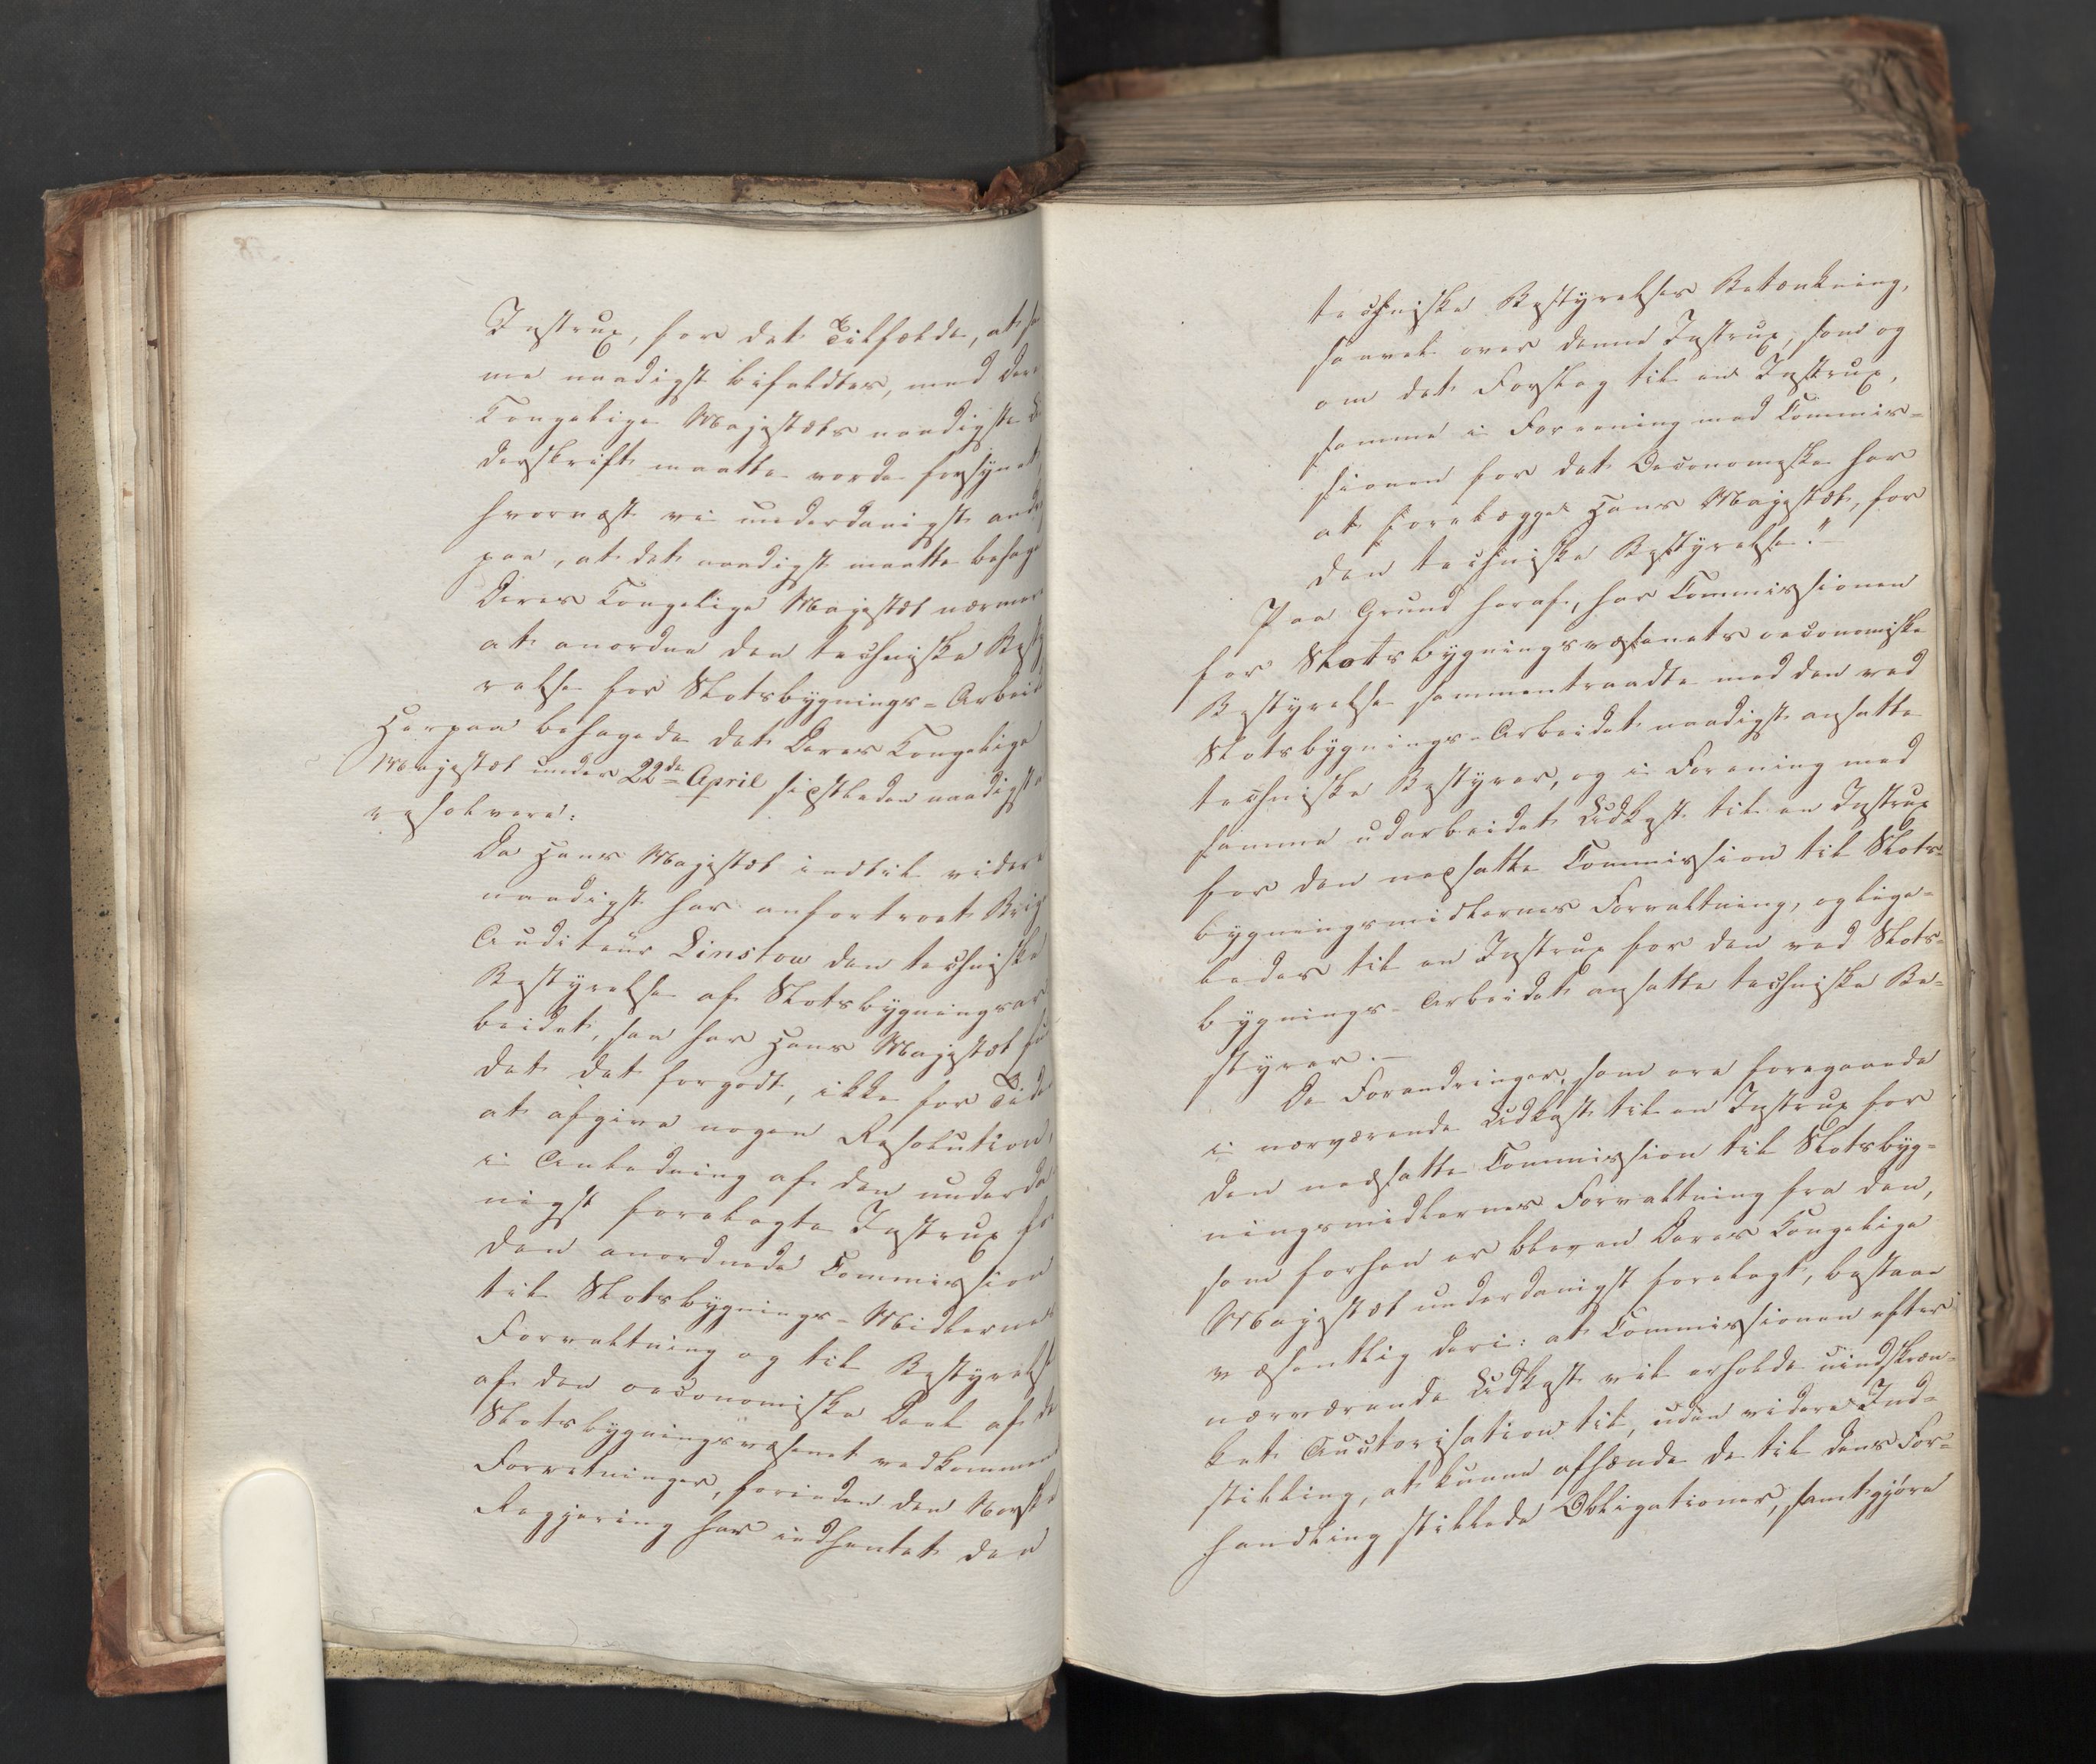 Instrux, for det Tilfælde, at sa
me naadigst bifaldtes, med Dere
Kongelige Majestæts naadigste U
derskrift maatte vorde forsynet,
hvornæst vi underdanigst andr
paa, at det naadigst maatte behage
Deres Kongelige Majestæt nærmer
at anordne den techniske Besty
relse for Slotsbygnings-Arbeid
Herpaa behagede det Deres Kongelige
Majestæt under 22de April sidstleden naadigst
resolvere:
Da Hans Majestæt indtil videre
naadigst har anfortroet Brig
Auditeur Linstow den techniske
Bestyrelse af Slotsbygningsar
beidet, saa har Hans Majestæt fun
det det forgodt, ikke for Tide
at afgive nogen Resolution,
i Anledning af den underda
nigst forelagte Instrux fo
den anordnede Commission
til Slotsbygnings-Midlernes
Forvaltning og til Bestyrelse
af den oeconomiske Deel af de
Slotsbygningsvæsenet vedkommen
Forretninger, forinden den Norske
Regjering har indhentet den
techniske Bestyrelses Betænkning,
saavel over denne Instrux, som og
om det Forslag til en Instrux,
samme i Foreening med Commis-
sionen for det Oeconomiske har
at forelægge Hans Majestæt, for
den techniske Bestyrelse."-
Paa Grund heraf, har Commissionen
for Slotsbygningsvæsenets oeconomiske
Bestyrelse sammentraadte med den ved
Slotsbygnings-Arbeidet naadigst ansatte
techniske Bestyrer, og i Forening med
samme udarbeidet Udkast til en Instrux
for den nedsatte Commission til Slots-
bygningsmidlernes Forvaltning, og lige-
ledes til en Instrux for den ved Slots-
bygnings-Arbeidet ansatte techniske Be-
styrer.-
De Forandringer, som ere foregaaede
i nærværende Udkast til en Instrux for
den nedsatte Commission til Slotsbyg-
ningsmidlernes Forvaltning fra den,
som forhen er bleven Deres Kongelige
Majestæt underdanigst forelagt, bestaae
væsentlig deri: at Commissionen efter
nærværende Udkast vil erholde uindskræn-
ket Auctorisation til, uden videre Ind-
stilling, at kunne afhænde de til dens For-
handling stillede Obligationer, samt gjøre